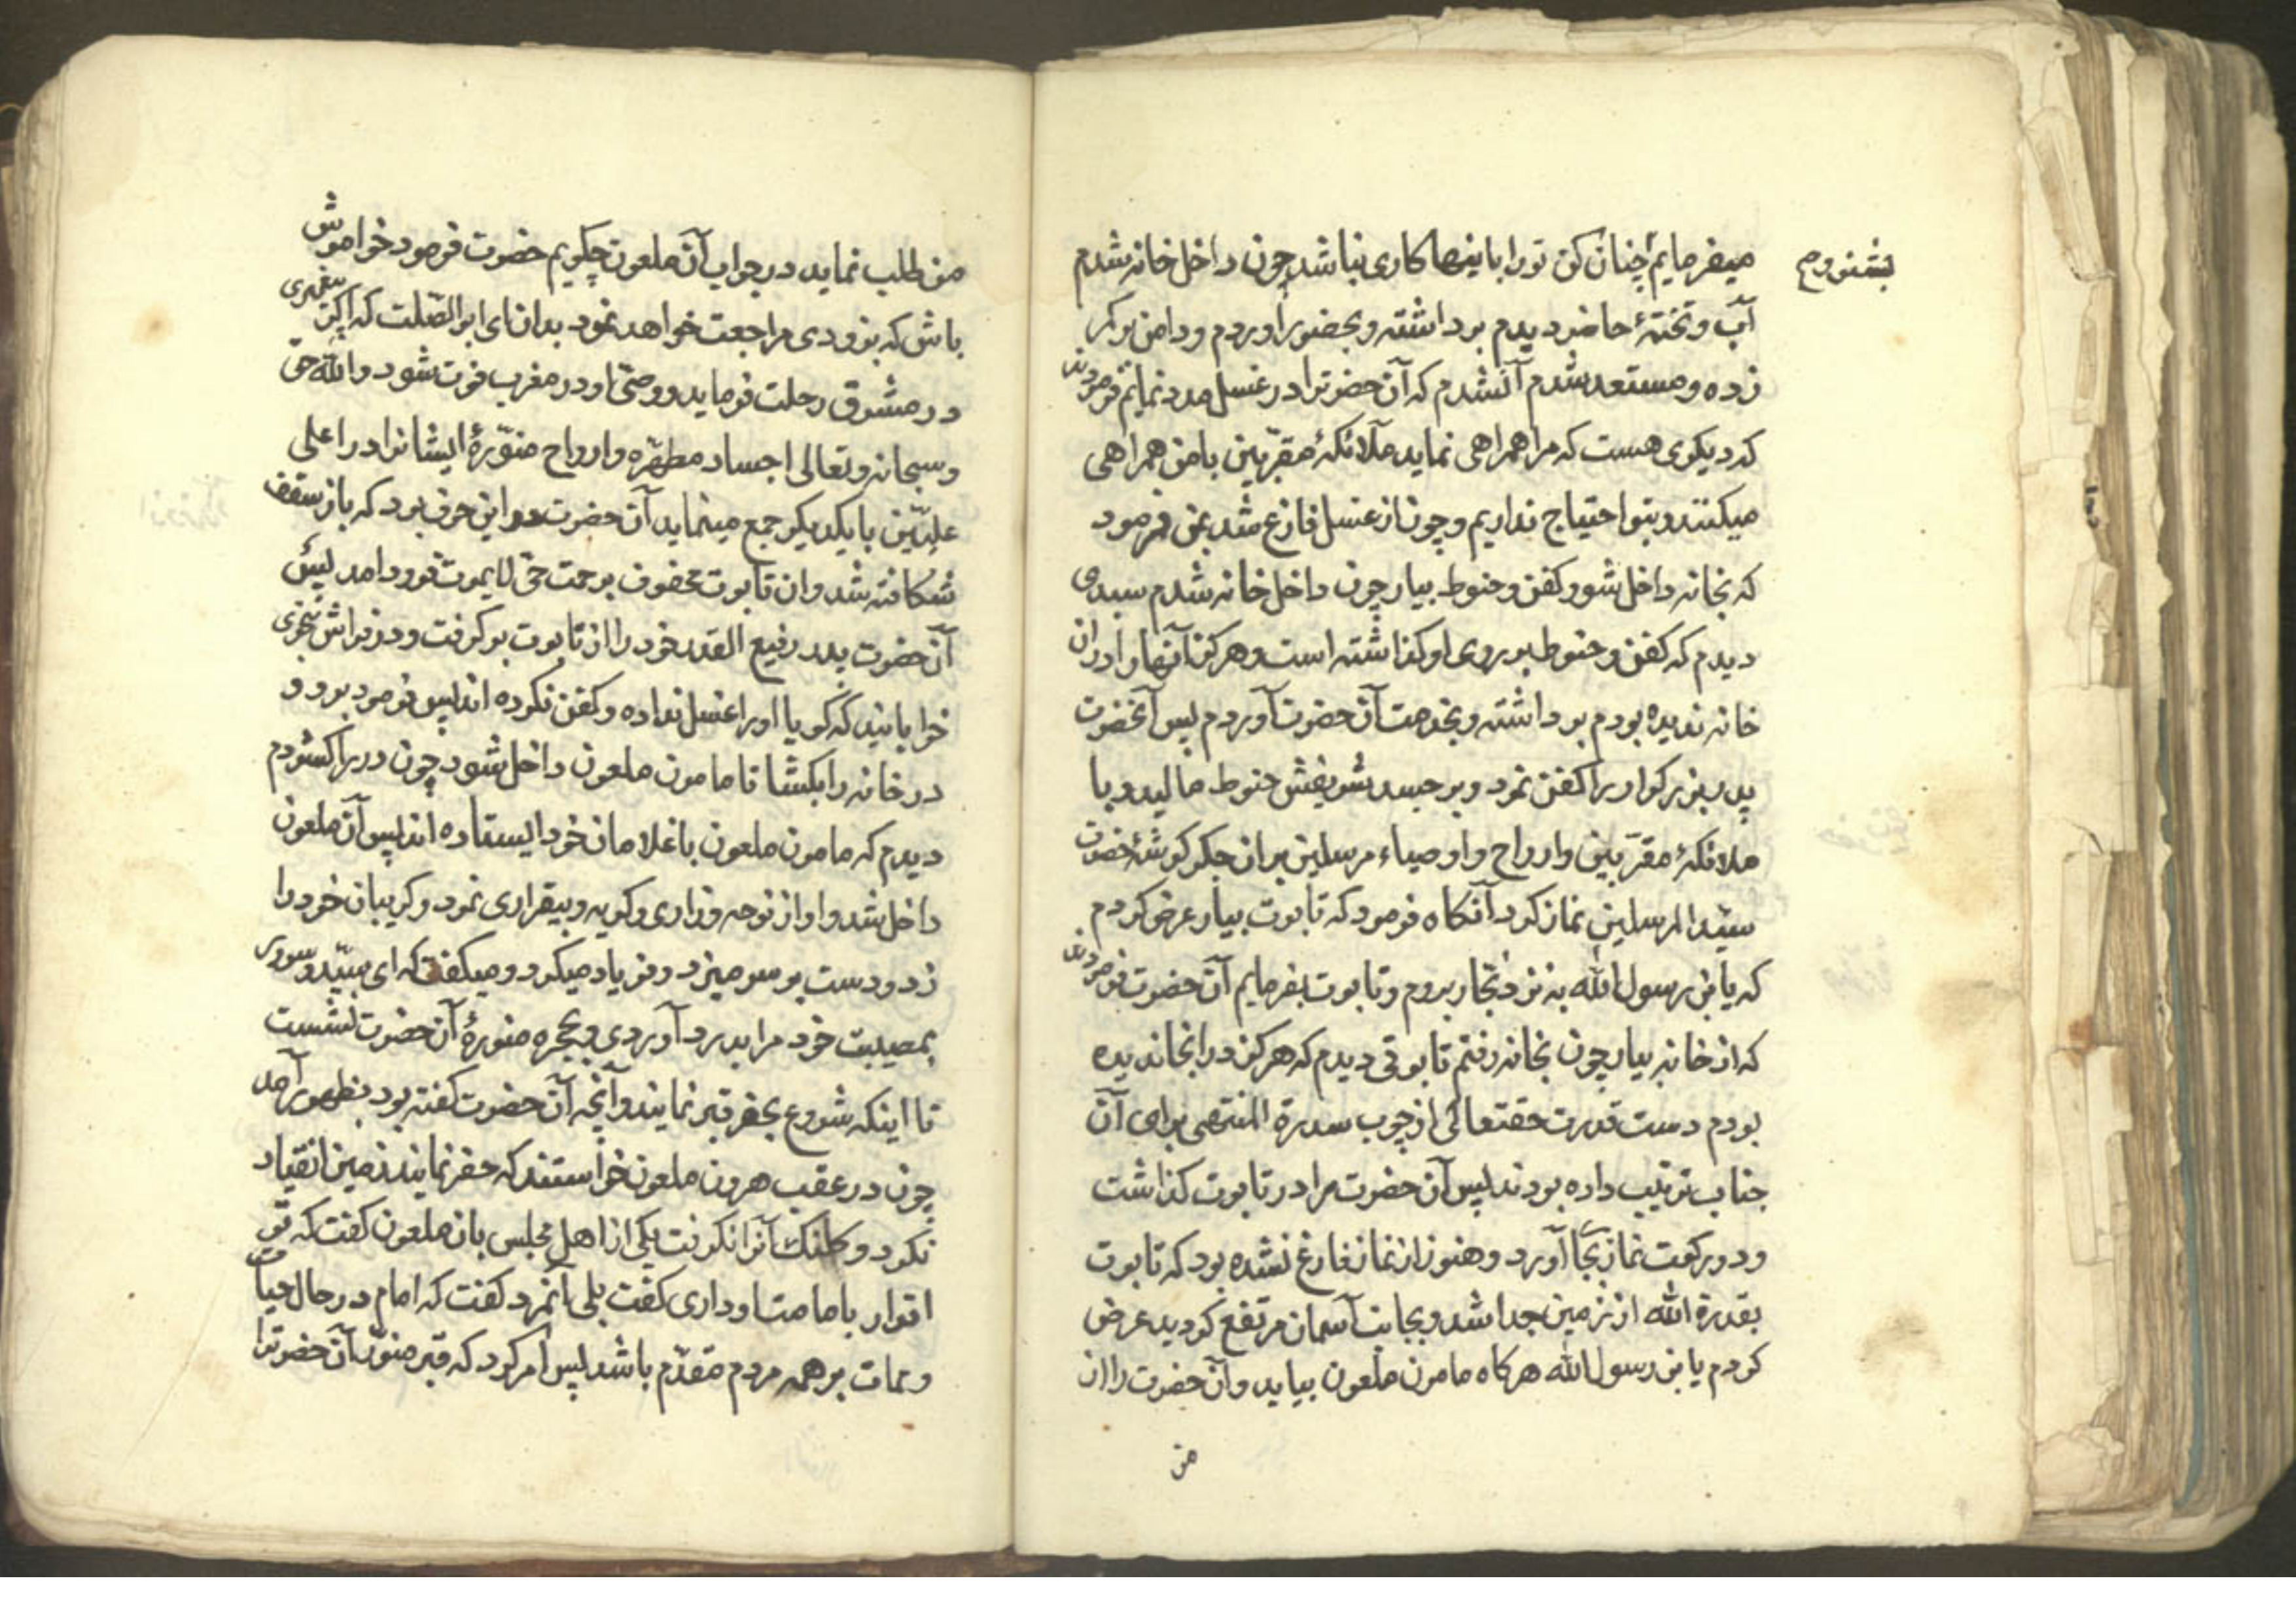 بشنو و ص
میفرمایم چنان کن تو را باینها کاری نباشد چون داخل خانه شدم
آب و تختهٔ حاضر دیدم برداشته و بحضور آوردم و دامن بر کمر
زده و مستعد شدم آنشدم که آن حضرترا در غسل مدد نمایم فرمودند
که دیکری هست که مرا همراهی نماید ملائکهٔ مقرّبین با من همراهی
میکنند و بتو احتیاج نداریم و چون از غسل فارغ شد بمن فرمود
که بخانه داخل شو و کفن و حنوط بیار چون داخل خانه شدم سبدی
دیدم که کفن و حنوط بر روی او کذاشته است و هرکز آنها را در ان
خانه ندیده بودم برداشته و بخدمت آن حضرت آوردم پس آنحضرت
پدر بزرکوار را کفن نمود و بر جسد شریفش حنوط مالید و با
ملائکهٔ مقرّبین و ارواح و اوصیاء مرسلین بران جکر کوشهٔ حضرت
سیّد المرسلین نماز کرد آنکاه فرمود که تابوت بیار عرض کردم
که یابن رسول الله به نزد نجّار بروم و تابوت بفرمایم آن حضرت فرمودند
که از خانه بیار چون بخانه رفتم تابوتی دیدم که هرکز در انجا ندیده
بودم دست قدرت حقتعالی از چوب سدرة المنتهی برای آن
جناب ترتیب داده بودند پس آن حضرت مرا در تابوت کذاشت
و دو رکعت نماز بجا آورد و هنوز از نماز فارغ نشده بود که تابوت
بقدرة الله از زمین جدا شد و بجانب آسمان مرتفع کردید عرض
کردم یابن رسول الله هرکاه مامون ملعون بیاید و آن حضرت را از
من
من طلب نماید در جواب آن ملعون چکویم حضرت فرمود خواموش
باش که بزودی مراجعت خواهد نمود بدان ای ابو الصّلت که اکر پیغمبری
در مشرق رحلت فرماید و وصیّ او در مغرب فوت شود والله حق
و سبحانه و تعالی اجساد مطهّره و ارواح منوّرهٔ ایشانرا در اعلی
علیّین با یکدیکر جمع مینماید آن حضرت در این حرف بود که باز سقف
شکافته شد و ان تابوت محفوف برحمت حیّ لا یموت فرود امد پس
آن حضرت پدر رفیع القدر خود را از تابوت بر کرفت و در فراش بنحوی
خوابانید که کویا او را غسل نداده و کفن نکرده اند پس فرمود برو و
در خانه را بکشا تا مامون ملعون داخل شود چون در را کشودم
دیدم که مامون ملعون با غلامان خود ایستاده اند پس آن ملعون
داخل شد و اواز نوحه و زاری و کریه و بیقراری نمود و کریبان خود را
زد و دست بر سر میزد و فریاد میکرد و میکفت که ای سیّد و سرور
بمصیبت خود مرا بدرد آوردی و بحجره منورهٔ آن حضرت نشست
تا اینکه شروع بحفر قبر نمایند و آنچه آن حضرت کفته بود بظهور آمد
چون در عقب هرون ملعون خواستند که حفر نمایند زمین انقیاد
نکرد و کلنک آنرا نکرفت یکی از اهل مجلس بان ملعون کفت که تو
اقرار بامامت او داری کفت بلی آنمرد کفت که امام در حال حیات
و ممات بر همه مردم مقدّم باشد پس امر کرد که قبر منوّر آن حضرترا